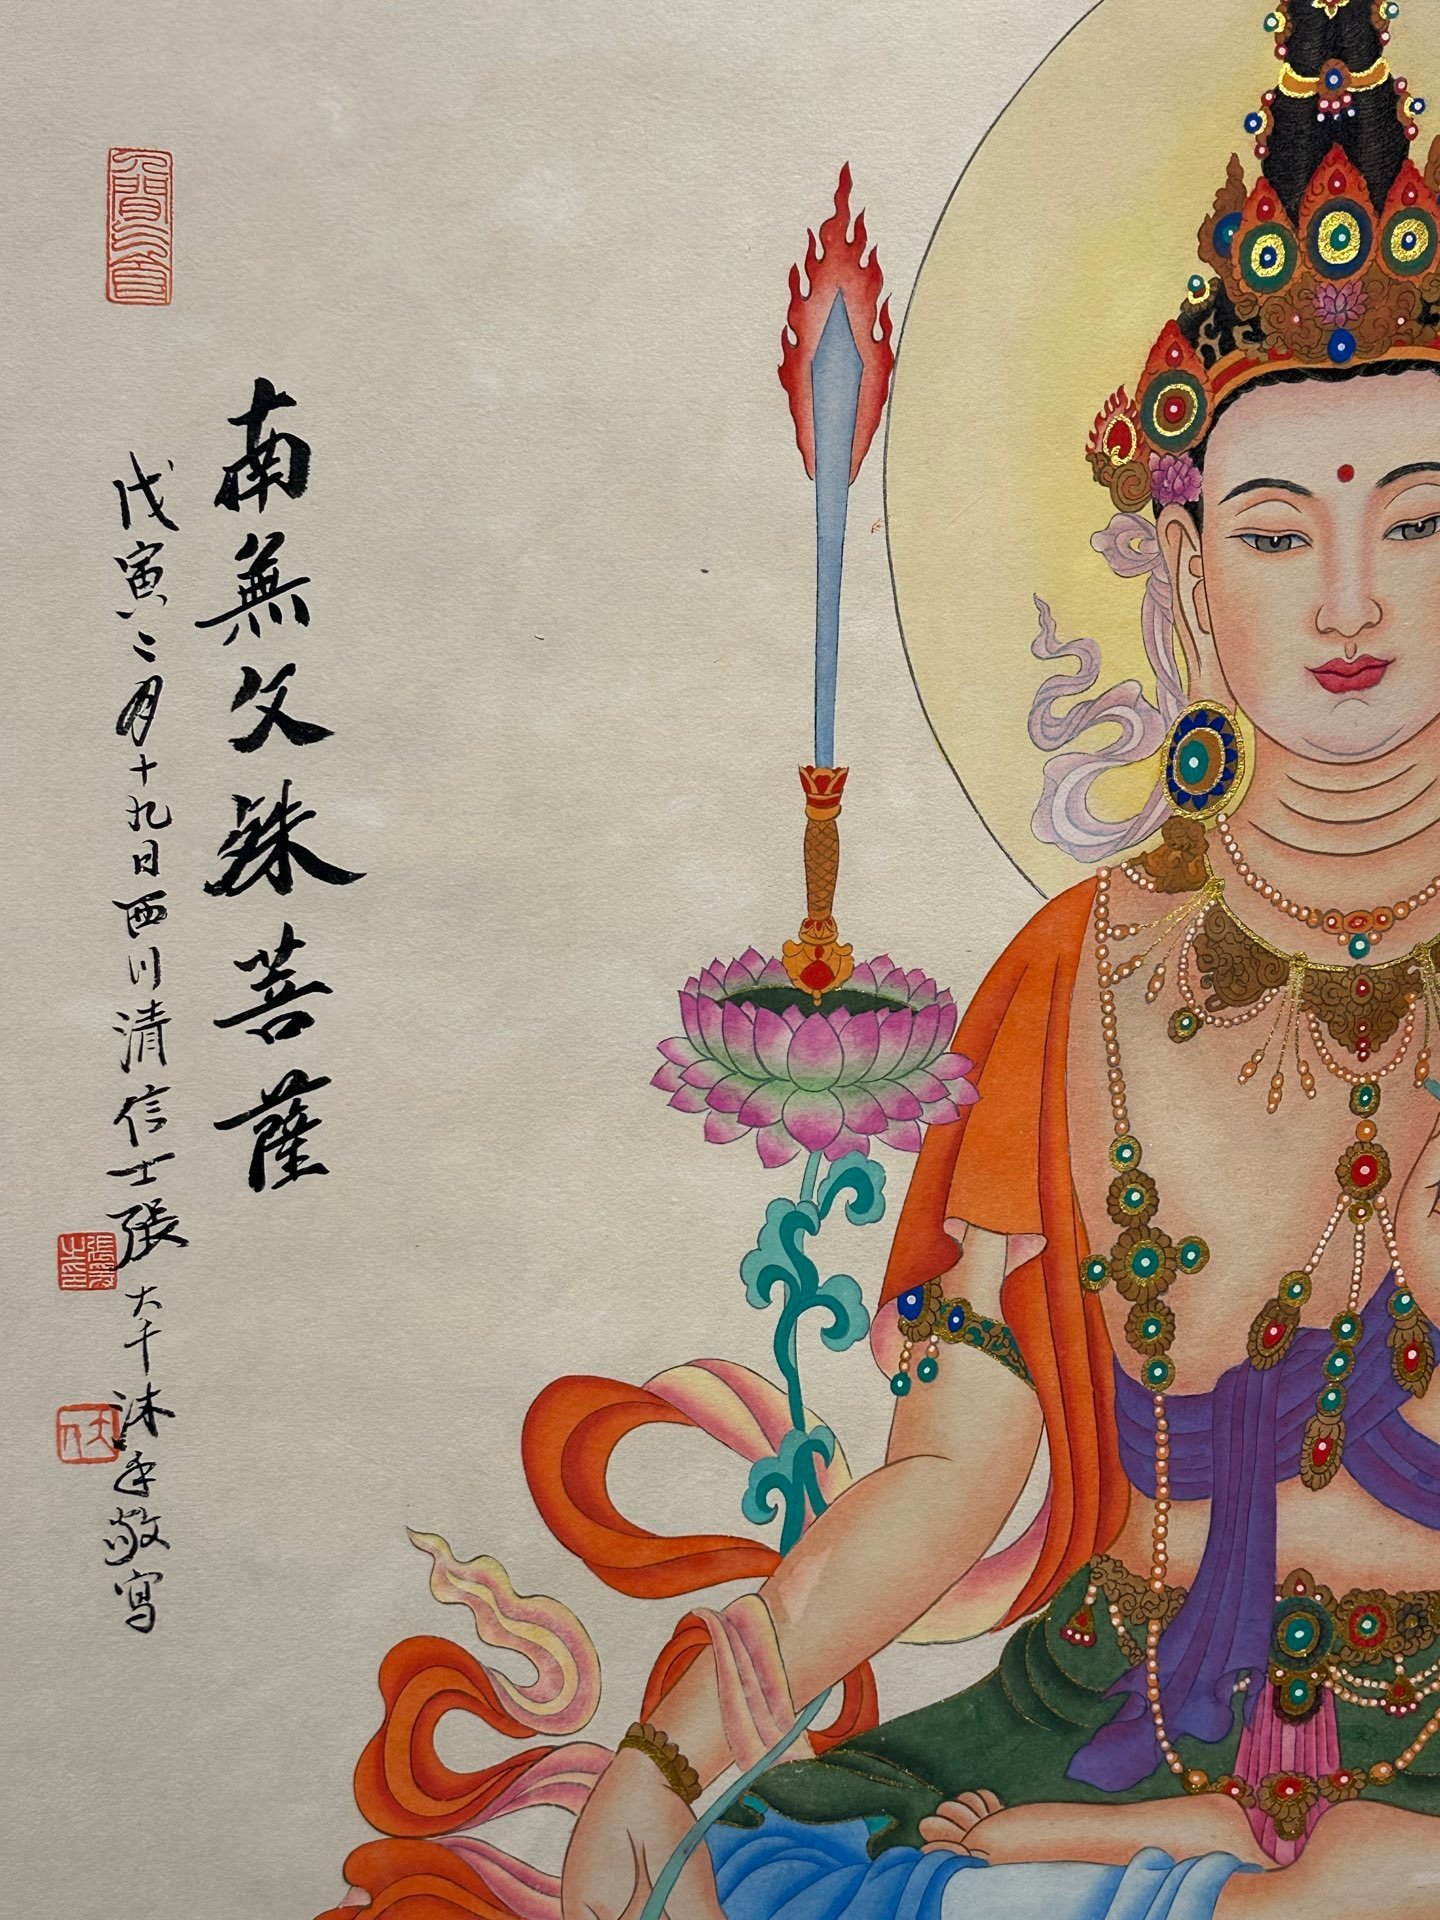 南無文殊菩薩
戊寅二月十九日西川清信士張大千沐手敬寫